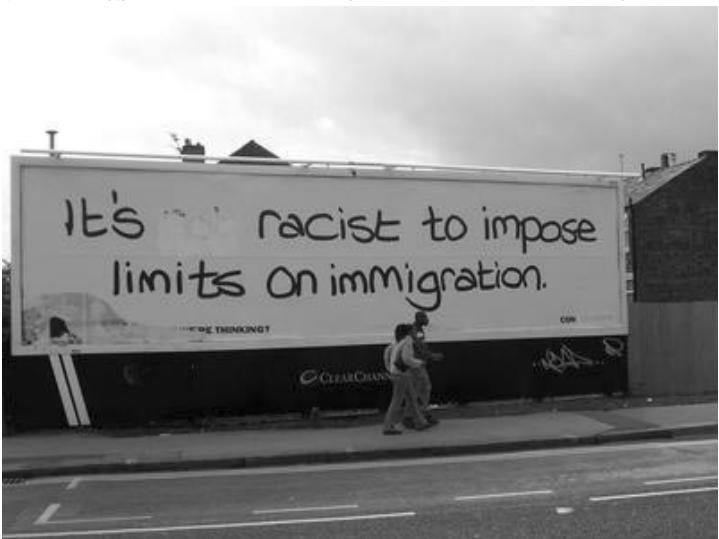 It's racist to impose
limits on immigration.
WERE THINKING?
CON
CLEARCHANN